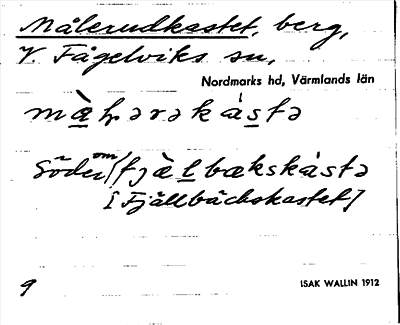 Målerudkastet, berg,
V. Fågelviks sn,
Nordmarks hd, Värmlands län
Söder om
[Fjällbäckskastet]
9
ISAK WALLIN 1912